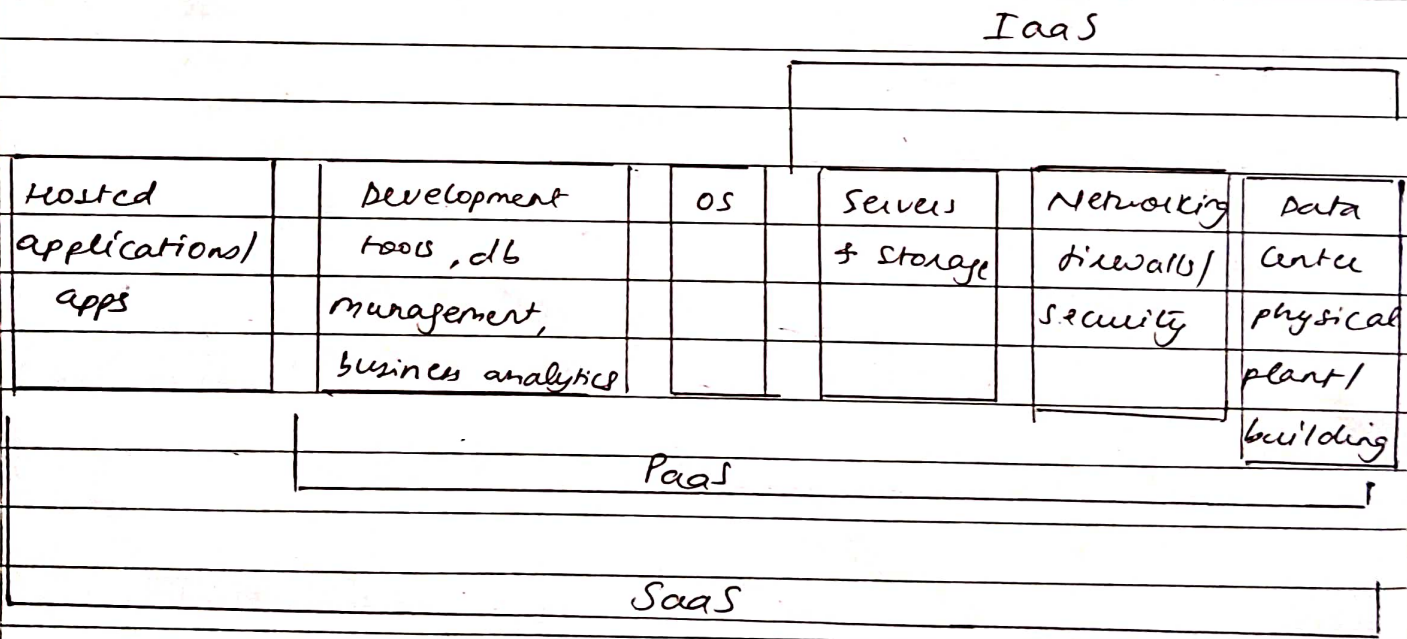 IaaS
Hosted
applications/
apps
Development
tools, db
management,
business analytics
OS
Servers
& Storage
Networking
firewalls/
security
Data
center
physical
plant/
building
PaaS
SaaS